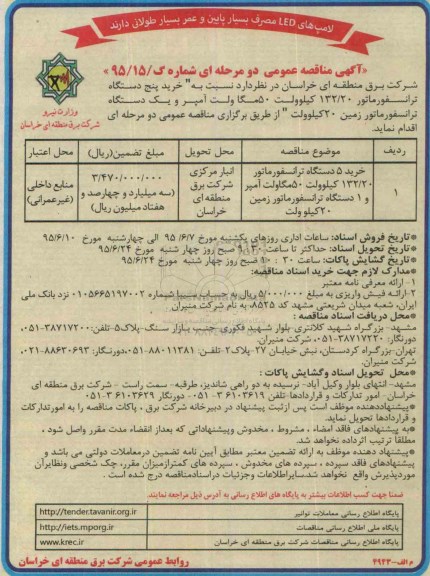 لامپ‌های LED مصرف بسیار پایین و عمر بسیار طولانی دارند
«آگهی مناقصه عمومی دو مرحله ای شماره گ/۹۵/۱۵»
وزارت نیرو
شرکت برق منطقه ای خراسان
شرکت برق منطقه ای خراسان در نظردارد نسبت به" خرید پنج دستگاه
ترانسفورماتور ۱۳۲/۲۰ کیلوولت ۵۰مگا ولت آمپر و یک دستگاه
ترانسفورماتور زمین ۲۰کیلوولت " از طریق برگزاری مناقصه عمومی دو مرحله ای
اقدام نماید.
ردیف موضوع مناقصه محل تحویل مبلغ تضمین(ریال) محل اعتبار
۱ خرید ۵ دستگاه ترانسفورماتور ۱۳۲/۲۰ کیلوولت ۵۰مگاولت آمپر و ۱ دستگاه ترانسفورماتور زمین ۲۰کیلو ولت
انبار مرکزی شرکت برق منطقه ای خراسان
۳/۴۷۰/۰۰۰/۰۰۰ (سه میلیارد و چهارصد و هفتاد میلیون ریال)
منابع داخلی (غیرعمرانی)
*تاریخ فروش اسناد: ساعات اداری روزهای یکشنبه مورخ ۹۵/۶/۷ الی چهارشنبه مورخ ۹۵/۶/۱۰
*تاریخ تحویل اسناد: حداکثر تا ساعت ۹:۳۰ صبح روز چهار شنبه مورخ ۹۵/۶/۲۴
*تاریخ گشایش پاکات: ساعت ۱۰:۳۰ صبح روز چهار شنبه مورخ ۹۵/۶/۲۴
*مدارک لازم جهت خرید اسناد مناقصه:
۱-ارائه معرفی نامه معتبر
۲-ارائه فیش واریزی به مبلغ ۵/۰۰۰/۰۰۰ ریال به حساب سیبا شماره ۰۱۰۵۶۶۵۱۹۷۰۰۲ نزد بانک ملی
ایران، شعبه میدان شریعتی مشهد کد ۸۵۲۵ به نام شرکت منیران.
*محل دریافت اسناد مناقصه:
مشهد- بزرگراه شهید کلانتری بلوار شهید فکوری جنب بازار سنگ- پلاک۵-تلفن: ۳۸۷۱۷۲۰۰-۰۵۱
دورنگار: ۳۸۷۱۷۲۲۰-۰۵۱ شرکت منیران.
تهران-بزرگراه کردستان، نبش خیابان ۲۷-پلاک۲ تلفن: ۸۸۰۱۱۳۸۱-۰۵۱دورنگار: ۸۸۶۳۰۶۹۳-۰۲۱
شرکت منیران
*محل تحویل اسناد وگشایش پاکات :
مشهد- انتهای بلوار وکیل آباد- نرسیده به دو راهی شاندیز، طرقبه- سمت راست - شرکت برق منطقه ای
خراسان- امور تدارکات و قراردادها-تلفن ۳۶۱۰۳۶۱۹-۰۵۱- دورنگار ۳۶۱۰۳۶۲۹-۰۵۱
*پیشنهاددهنده موظف است پس ازثبت پیشنهاد در دبیرخانه شرکت برق ، پاکات مناقصه را به امورتدارکات
و قراردادها تحویل نماید.
*به پیشنهادهای فاقد امضاء ، مشروط ، مخدوش وپیشنهاداتی که بعداز انقضاء مدت مقرر واصل شود ،
مطلقا ترتیب اثرداده نخواهد شد.
*پیشنهاد دهنده موظف به ارائه تضمین معتبر مطابق آیین نامه تضمین درمعاملات دولتی می باشد و
پیشنهادهای فاقد سپرده ، سپرده های مخدوش ، سپرده های کمترازمیزان مقرر، چک شخصی ونظایرآن
موردپذیرش واقع نخواهد شد.سایراطلاعات وجزئیات دراسنادمناقصه درج شده است .
ضمنا جهت کسب اطلاعات بیشتر به پایگاه های اطلاع رسانی به آدرس ذیل مراجعه نمایند.
پایگاه اطلاع رسانی معاملات توانیر http://tender.tavanir.org.ir
پایگاه ملی اطلاع رسانی مناقصات http://iets.mporg.ir
پایگاه اطلاع رسانی مناقصات شرکت برق منطقه ای خراسان www.krec.ir
روابط عمومی شرکت برق منطقه ای خراسان
م الف-۴۹۳۳